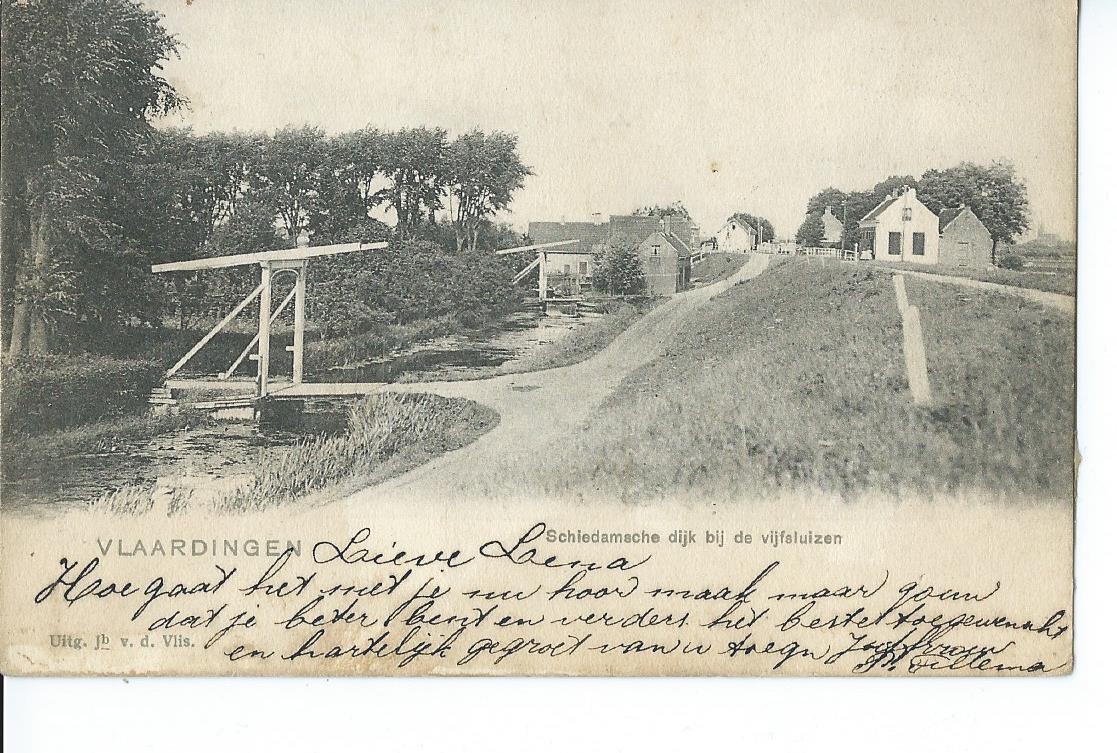 VLAARDINGEN
Schiedamsche dijk bij de vijfsluizen
Lieve Lena
Hoe gaat het met je nu hoor maak maar gouw
dat je beter bent en verders het beste toegewenscht
en hartelijk gegroet van u toegn
Uitg. Jb v. d. Vlis.